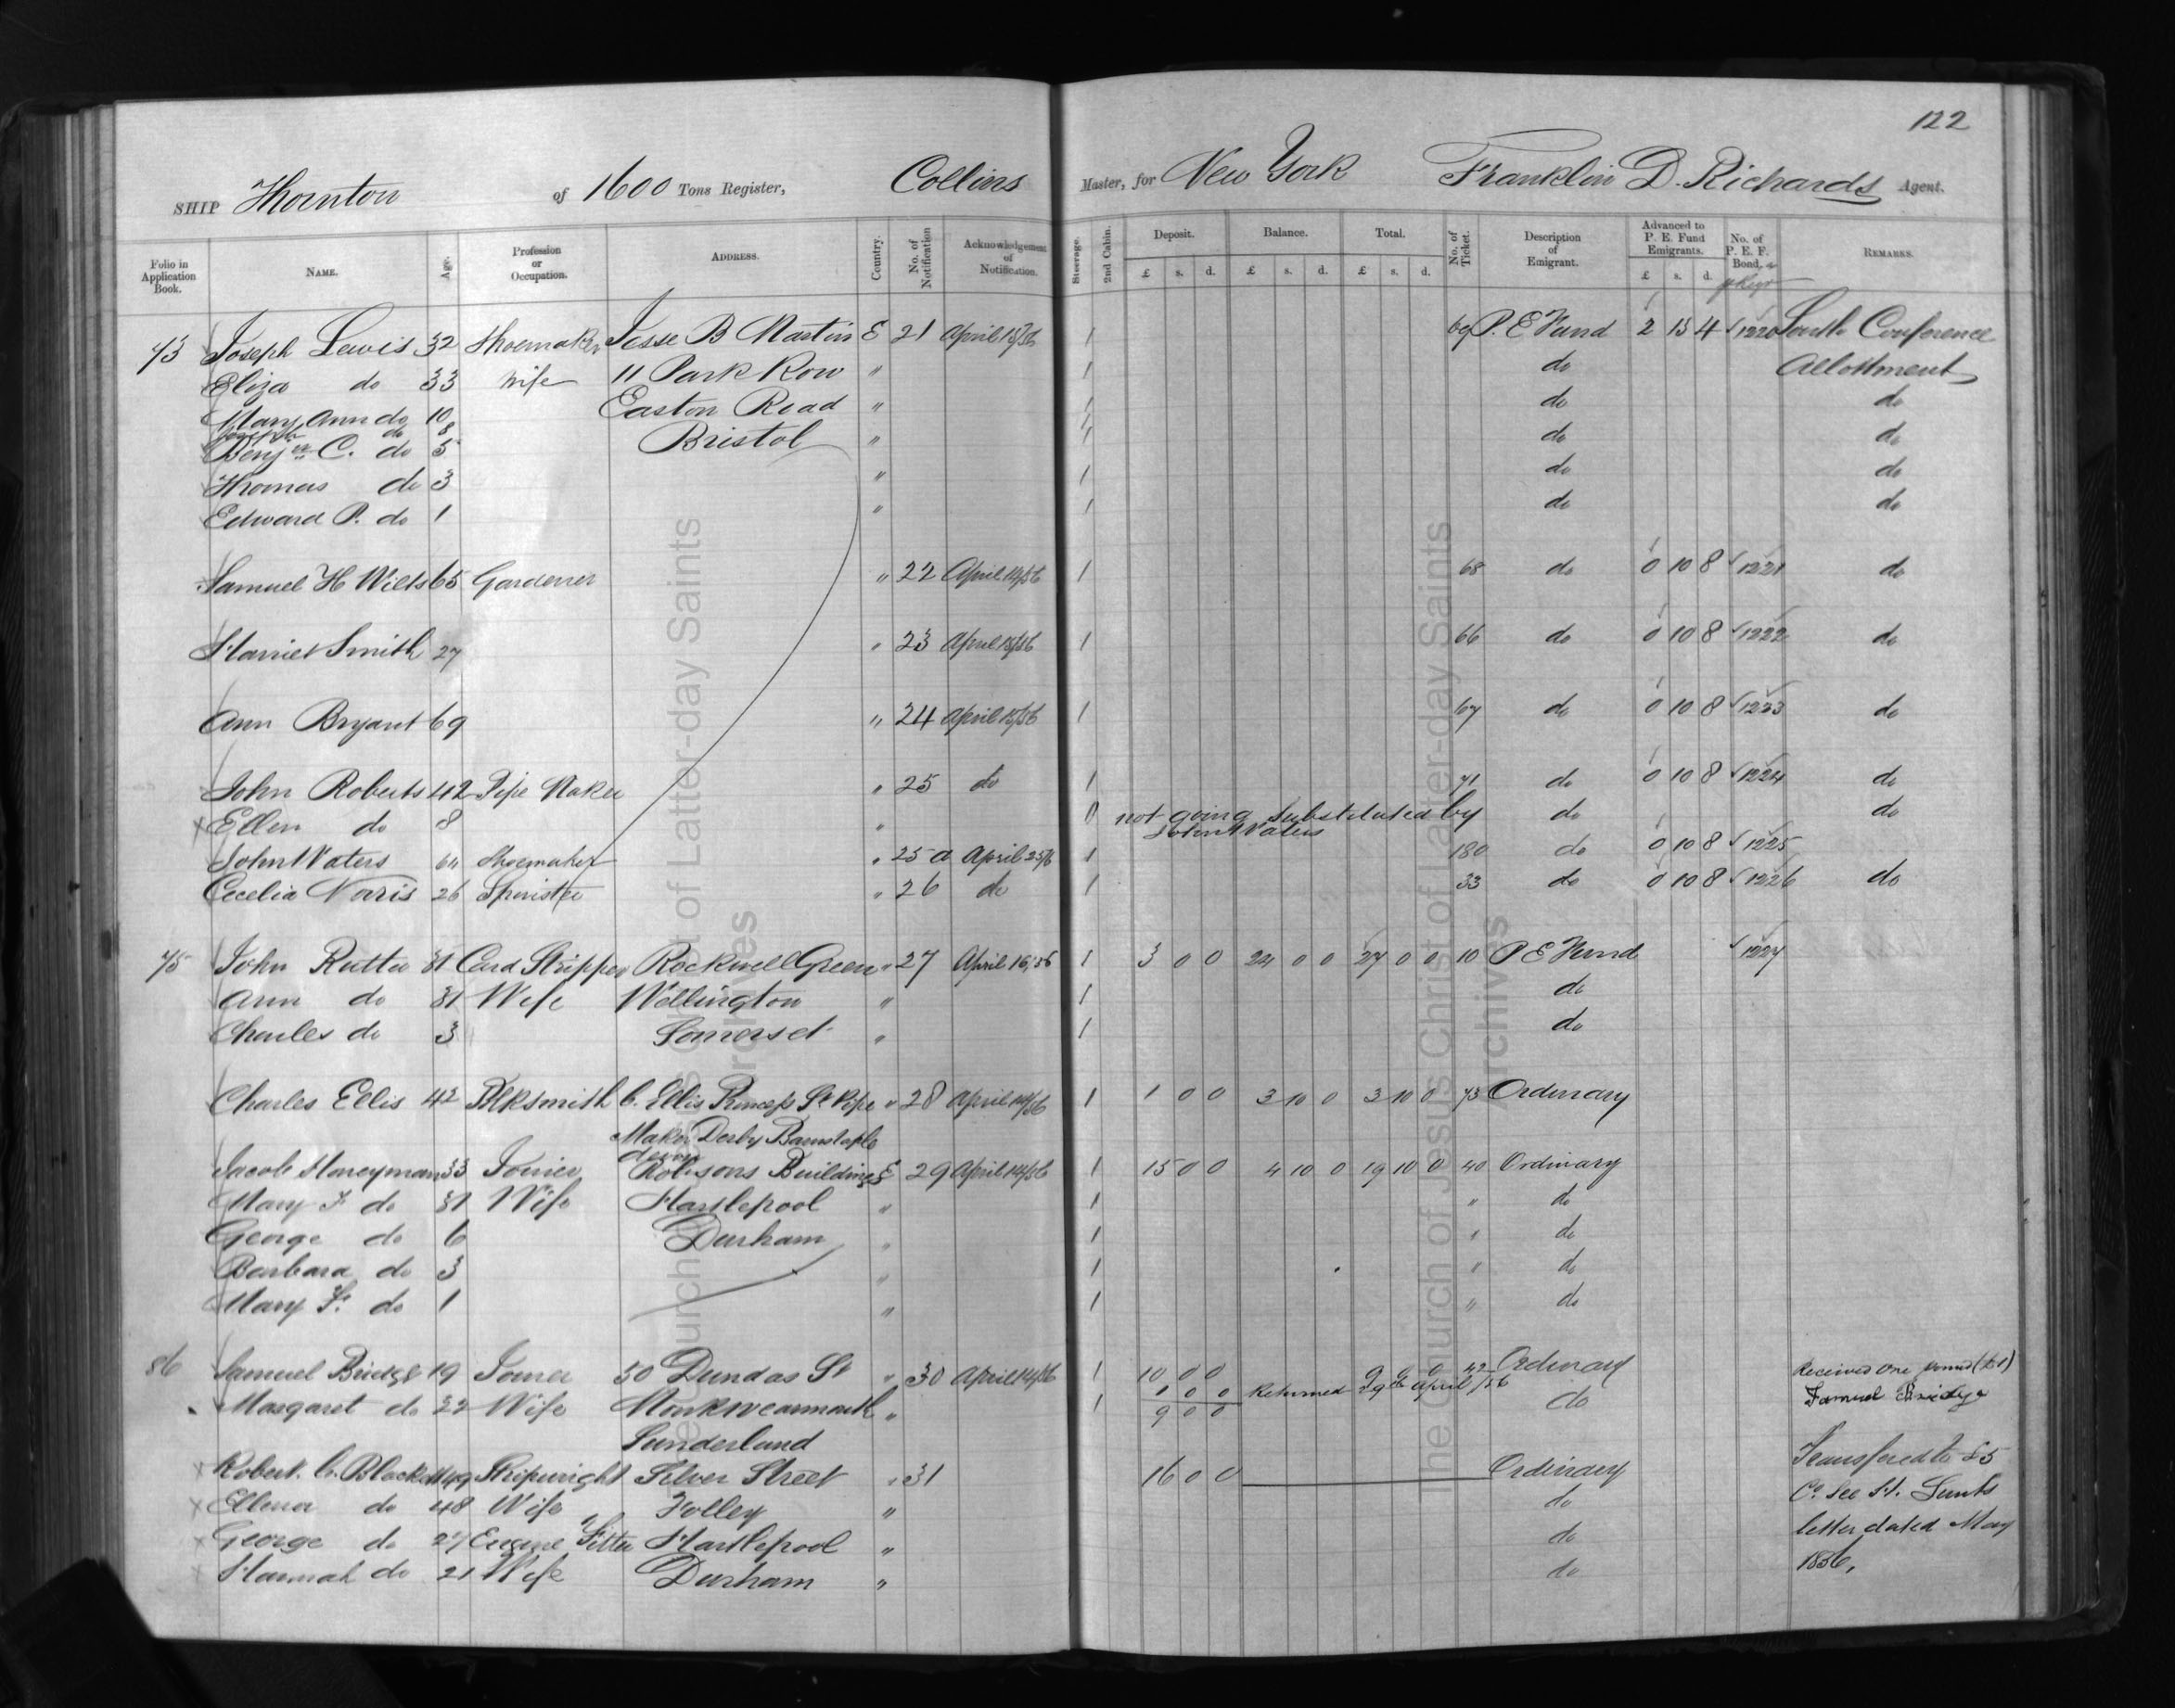 122
SHIP Thornton of 1600 Tons Register, Collins Master, for New York Franklin D. Richards Agent.
Folio in Application Book. NAME. Age. Profession or Occupation. ADDRESS. Country. No. of Notification Acknowledgement of Notification. Steerage. 2nd Cabin. Deposit. £ s. d. Balance. £ s. d. Total. £ s. d. No. of Ticket. Description of Emigrant. Advanced to P. E. Fund Emigrants. £ s. d. No. of P. E. F. Bond. REMARKS.
73 Joseph Lewis 32 Shoemaker Jesse B Martin E 21 April 1 69 P. E Fund 2 13 4 1220 South Conference
Eliza do 33 Wife 11 Park Row " 1 do Allottment
Mary Ann do 10 Easton Road " 1 do do
Joseph do 8 1
Benjn C. do 5 Bristol " 1 do do
Thomas do 3 " 1 do do
Edward P. do 1 " 1 do do
Samuel H Wilts 65 Gardener " 22 April 14/56 1 68 do 0 10 8 1221 do
Harriet Smith 27 " 23 April 1 66 do 0 10 8 1222 do
Ann Bryant 69 " 24 April 1 67 do 0 10 8 1223 do
John Roberts 42 Pipe Maker " 25 do 1 71 do 0 10 8 1224 do
x Ellen do 8 " 0 not going substituted by do do
John Waters
John Waters 64 Shoemaker " 25 a April 25/6 1 180 do 0 10 8 1225
Cecelia Norris 26 Spinster " 26 do 1 33 do 0 10 8 1226 do
75 John Rutter 31 Card Stripper Rockwell Green " 27 April 16/56 1 3 0 0 24 0 0 27 0 0 10 P E Fund 1227
Ann do 31 Wife Wellington " 1 do
Charles do 3 Somerset " 1 do
Charles Ellis 42 Blksmith C. Ellis Princess St Pipe " 28 April 14/56 1 1 0 0 3 10 0 3 10 0 73 Ordinary
Maker Derby Barnstaple
devon
Jacob Honeyman 33 Joiner Robsons Buildings E 29 April 14/56 1 15 0 0 4 10 0 19 10 0 40 Ordinary
Mary F do 31 Wife Hartlepool " 1 " do
George do 6 Durham " 1 " do
Barbara do 3 " 1 " do
Mary F. do 1 " 1 " do
86 Samuel Bridge 19 Joiner 50 Dundas St " 30 April 14/56 1 10 0 0 9 0 0 42 Ordinary Received one pound (£1)
Margaret do 22 Wife Monkwearmouth " 1 1 0 0 Returned April /56 do Samuel Bridge
9 0 0
Sunderland
x Robert C. Blackett 49 Shipwright Silver Street " 31 16 0 0 Ordinary Transfered to £5
x Ellenor do 48 Wife Folley " do Co. See
x George do 27 Engine Fitter Hartlepool " do letter dated May
x Hannah do 21 Wife Durham " do 1856,
The Church of Jesus Christ of Latter-day Saints
Archives
The Church of Jesus Christ of Latter-day Saints
Archives